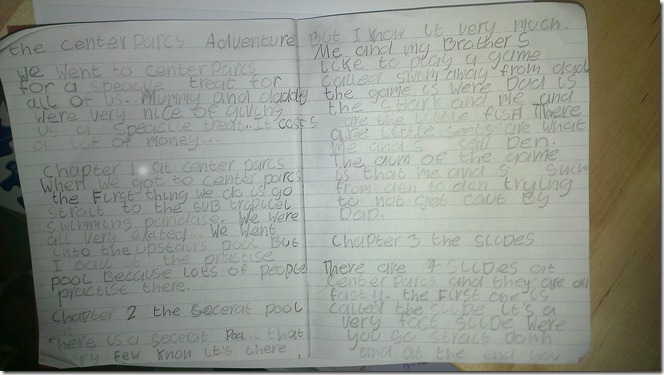 the center parcs Adventure
We Went to center parcs
for a speacile treat for
all of us. Mummy and daddy
were very nice of giving
us a speacile treat. It coses
a lot of money...
Chapter 1 at center parcs
When we got to center parcs
the first thing we do is go
strait to the sub tropical
swimming paradise. We were
all very exited. We went
into the upstairs pool But
I call it the practise
pool Because lots of people
practise there.
Chapter 2 the secerat pool
There is a secerat Pool.. that
very few know it's there
But I know it very much.
Me and my Brother S
like to play a game
called swim away from dad
the game is were Dad is
the shark and me and
are the little fish There
are little seets are what
me and S call Den.
The aim of the game
is that me and S swim
from den to den trying
to not get caut By
Dad.
Chapter 3 the slides
There are 4 slides at
center parcs and they are all
fast!!. the first one is
called the slide it's a
very fast slide were
you go strait down
and at the end you